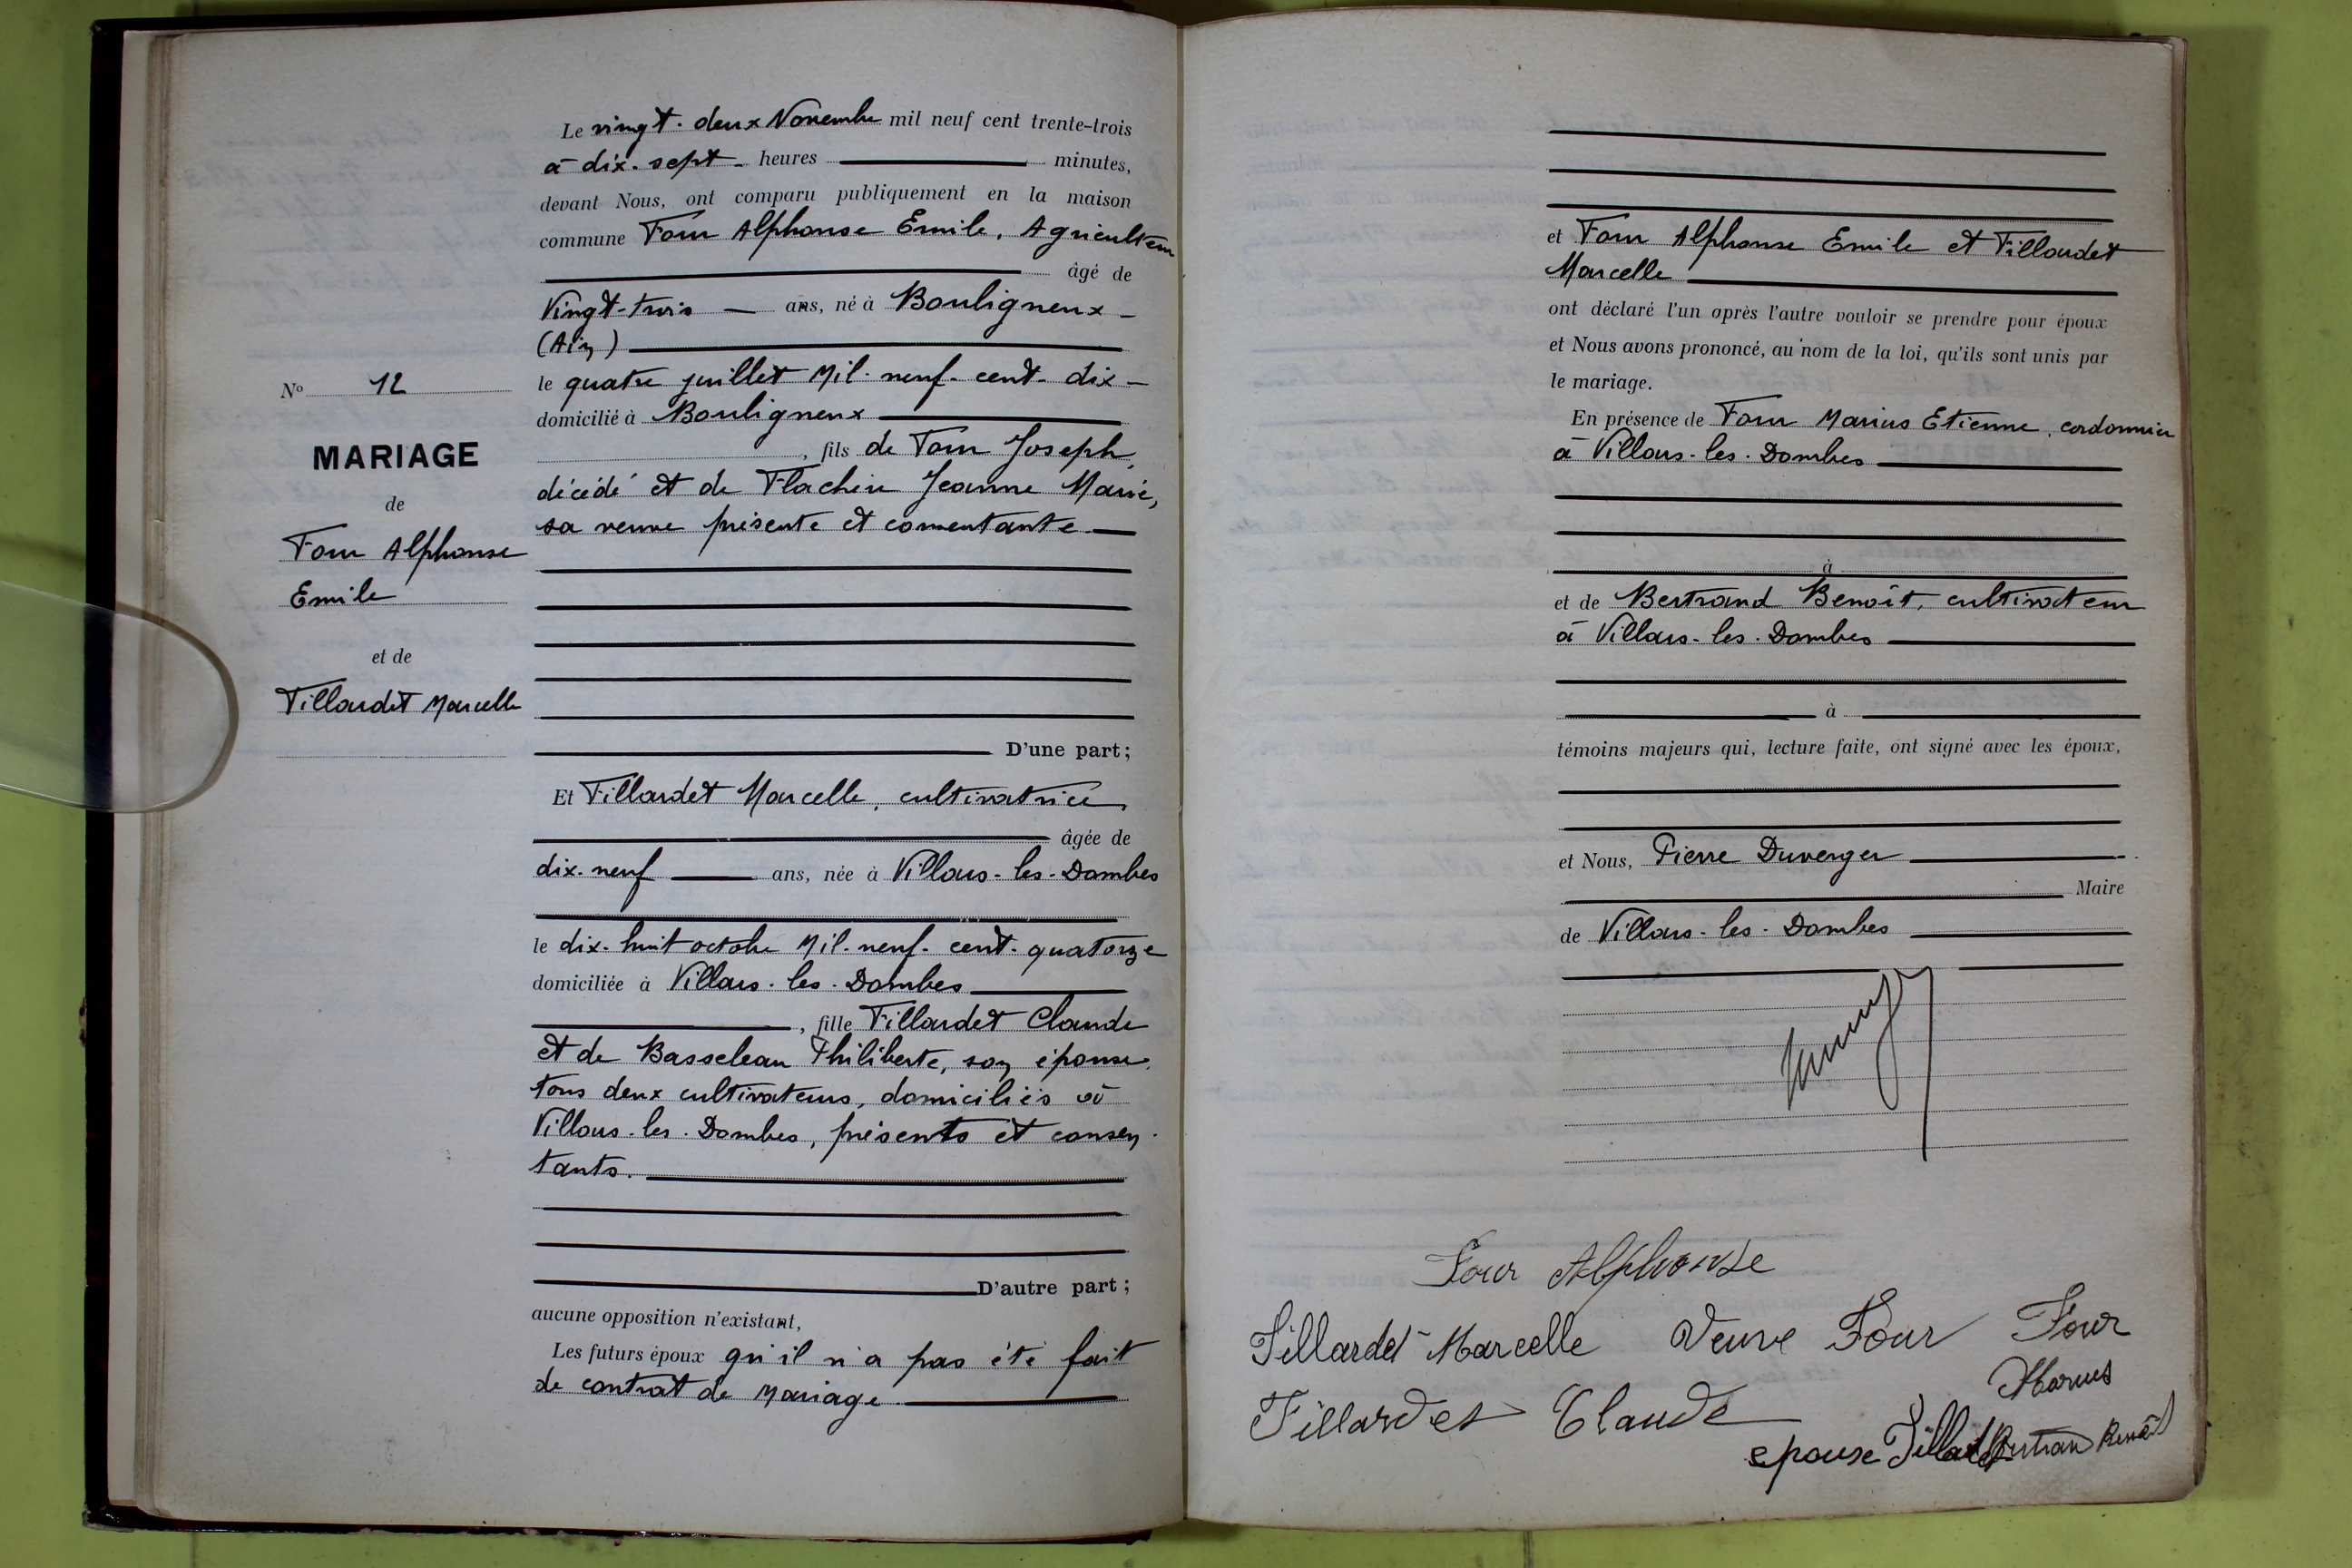 Le vingt-deux Novembre mil neuf cent trente-trois
à dix-sept heures minutes,
devant Nous, ont comparu publiquement en la maison
commune Four Alphonse Emile, Agriculteur
âgé de
Vingt-trois ans, né à Bouligneux
(Ain)
le quatre juillet Mil-neuf-cent-dix
domicilié à Bouligneux
, fils de Four Joseph,
décédé et de Flachère Jeanne Marie,
sa veuve présente et consentante
D'une part;
Et Fillardet Marcelle, cultivatrice,
âgée de
dix-neuf ans, née à Villars-les-Dombes
le dix-huit octobre Mil-neuf-cent-quatorze
domiciliée à Villars-les-Dombes
, fille Fillardet Claude
et de Basseleau Philiberte, son épouse,
tous deux cultivateurs, domiciliés à
Villars-les-Dombes, présents et consen-
tants.
D'autre part;
aucune opposition n'existant,
Les futurs époux qu'il n'a pas été fait
de contrat de Mariage
No 12
MARIAGE
de
Four Alphonse
Emile
et de
Fillardet Marcelle
et Four Alphonse Emile et Fillardet
Marcelle
ont déclaré l'un après l'autre vouloir se prendre pour époux
et Nous avons prononcé, au nom de la loi, qu'ils sont unis par
le mariage.
En présence de Four Marius Etienne, cordonnier
à Villars-les-Dombes
à
et de Bertrand Benoît, cultivateur
à Villars-les-Dombes
à
témoins majeurs qui, lecture faite, ont signé avec les époux,
et Nous, Pierre Duverger
Maire
de Villars-les-Dombes
Four Alphonse
Fillardet Marcelle Veuve Four Four
Marius
Fillardet Claude
epouse Fillardet Bertrand Benoît